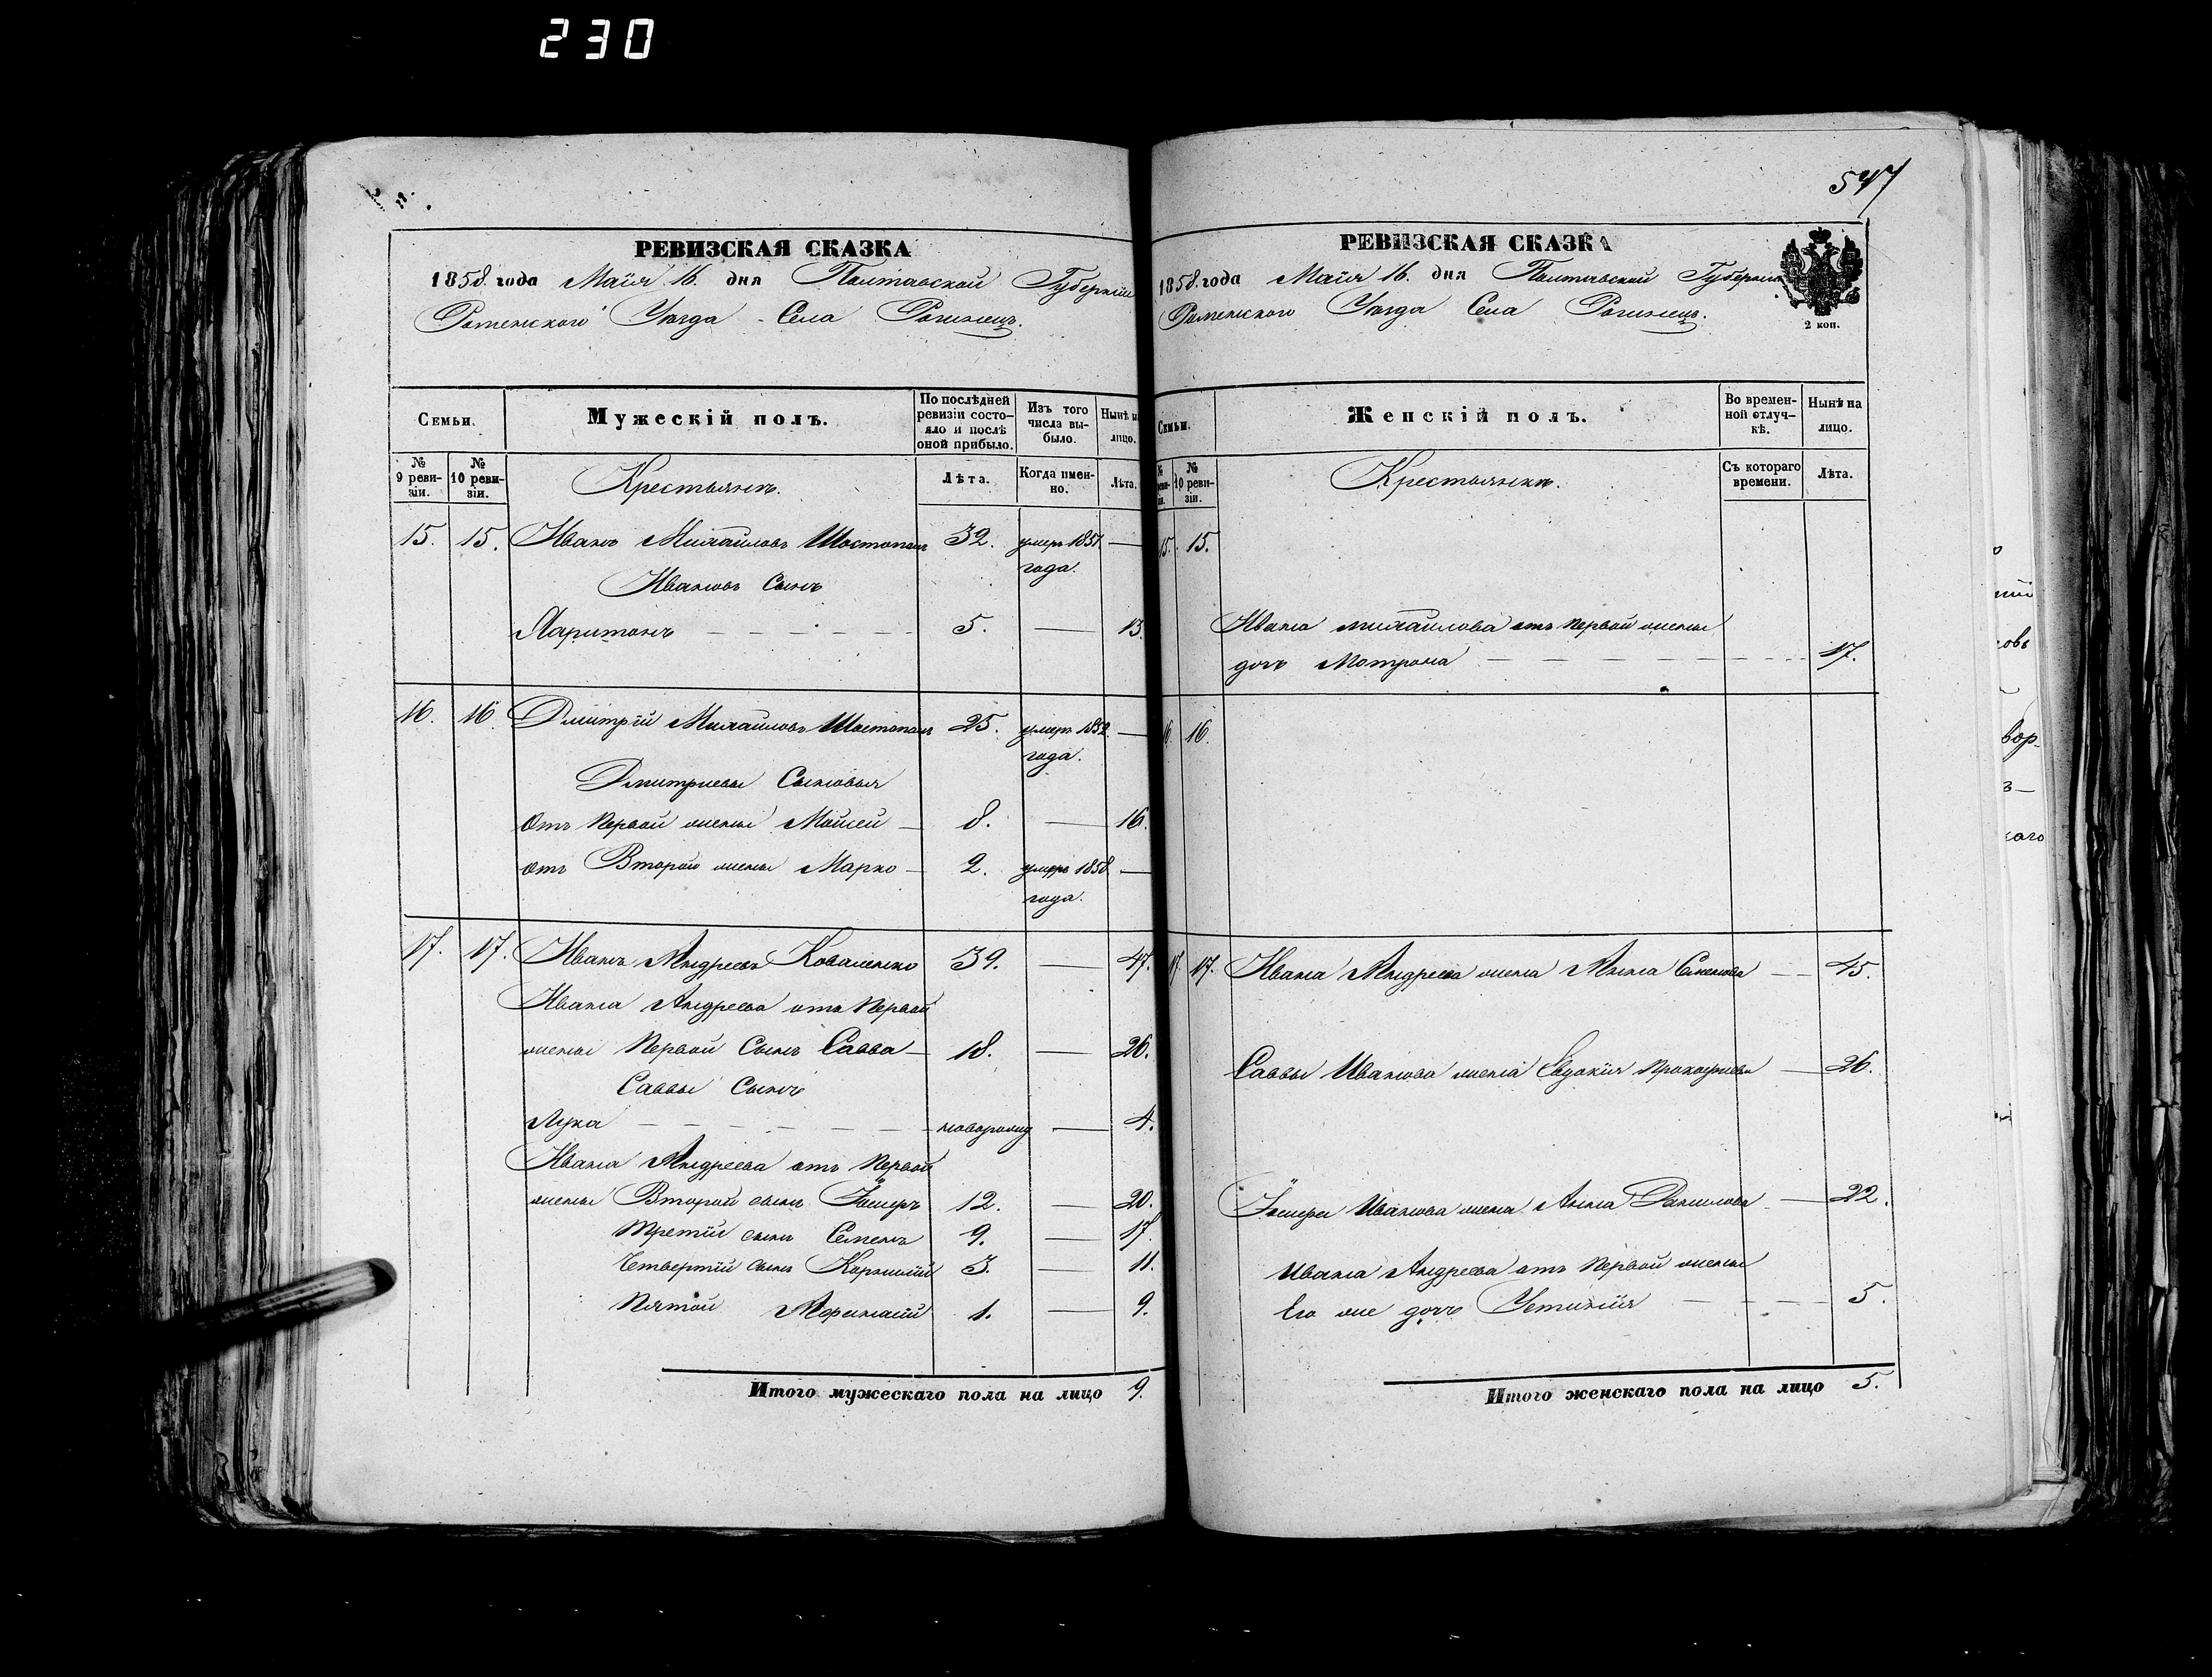 230
547
РЕВИЗСКАЯ СКАЗКА
1858 года Маія 16. дня Полтавской Губерніи
Роменскаго Уѣзда Села Рогинецъ.
Семьи. Мужескій полъ. По послѣдней ревизіи состояло и послѣ оной прибыло. Изъ того числа выбыло. Нынѣ на лицо.
№ 9 ревизіи. № 10 ревизіи. Крестьянъ. Лѣта. Когда именно. Лѣта.
15. 15. Иванъ Михайловъ Шостопалъ 32. умеръ 1851 —
года.
Ивановъ Сынъ
Харитонъ — 5. — 13.
16. 16. Дмитрій Михайловъ Шостопалъ 25. умеръ 1852. —
года.
Дмитріевы Сыновья
Отъ первой жены Мойсей — 8. — 16.
отъ Второй жены Марко — 2. умеръ 1858 —
года.
17. 17. Иванъ Андреевъ Коваленко 39. — 47.
Ивана Андреева отъ первой
жены первой Сынъ Савва — 18. — 26.
Саввы Сынъ
Лука — новорожд — 4.
Ивана Андреева отъ первой
жены Второй сынъ 12. — 20.
третій сынъ Семенъ 9. — 17.
Четвертій сынъ Корнилій 3. — 11.
Пятой 1. — 9.
Итого мужескаго пола на лицо 9.
РЕВИЗСКАЯ СКАЗКА
1858 года Маія 16. дня Полтавской Губерніи
Роменскаго Уѣзда Села Рогинецъ.
2 коп.
Семьи. Женскій полъ. Во временной отлучкѣ. Нынѣ на лицо.
№ 10 ревизіи. Крестьянки. Съ котораго времени. Лѣта.
15. 15.
Ивана михайлова отъ первой жены
дочь Мотрона — 17.
16. 16.
17. 17. Ивана Андреева жена Анна Семенова — 45.
Саввы Иванова жена Евдокія Прокофиева — 26.
Иванова жена Анна Данилова — 22.
Ивана Андреева отъ первой жены
Его же дочь Устинія — 5.
Итого женскаго пола на лицо 5.